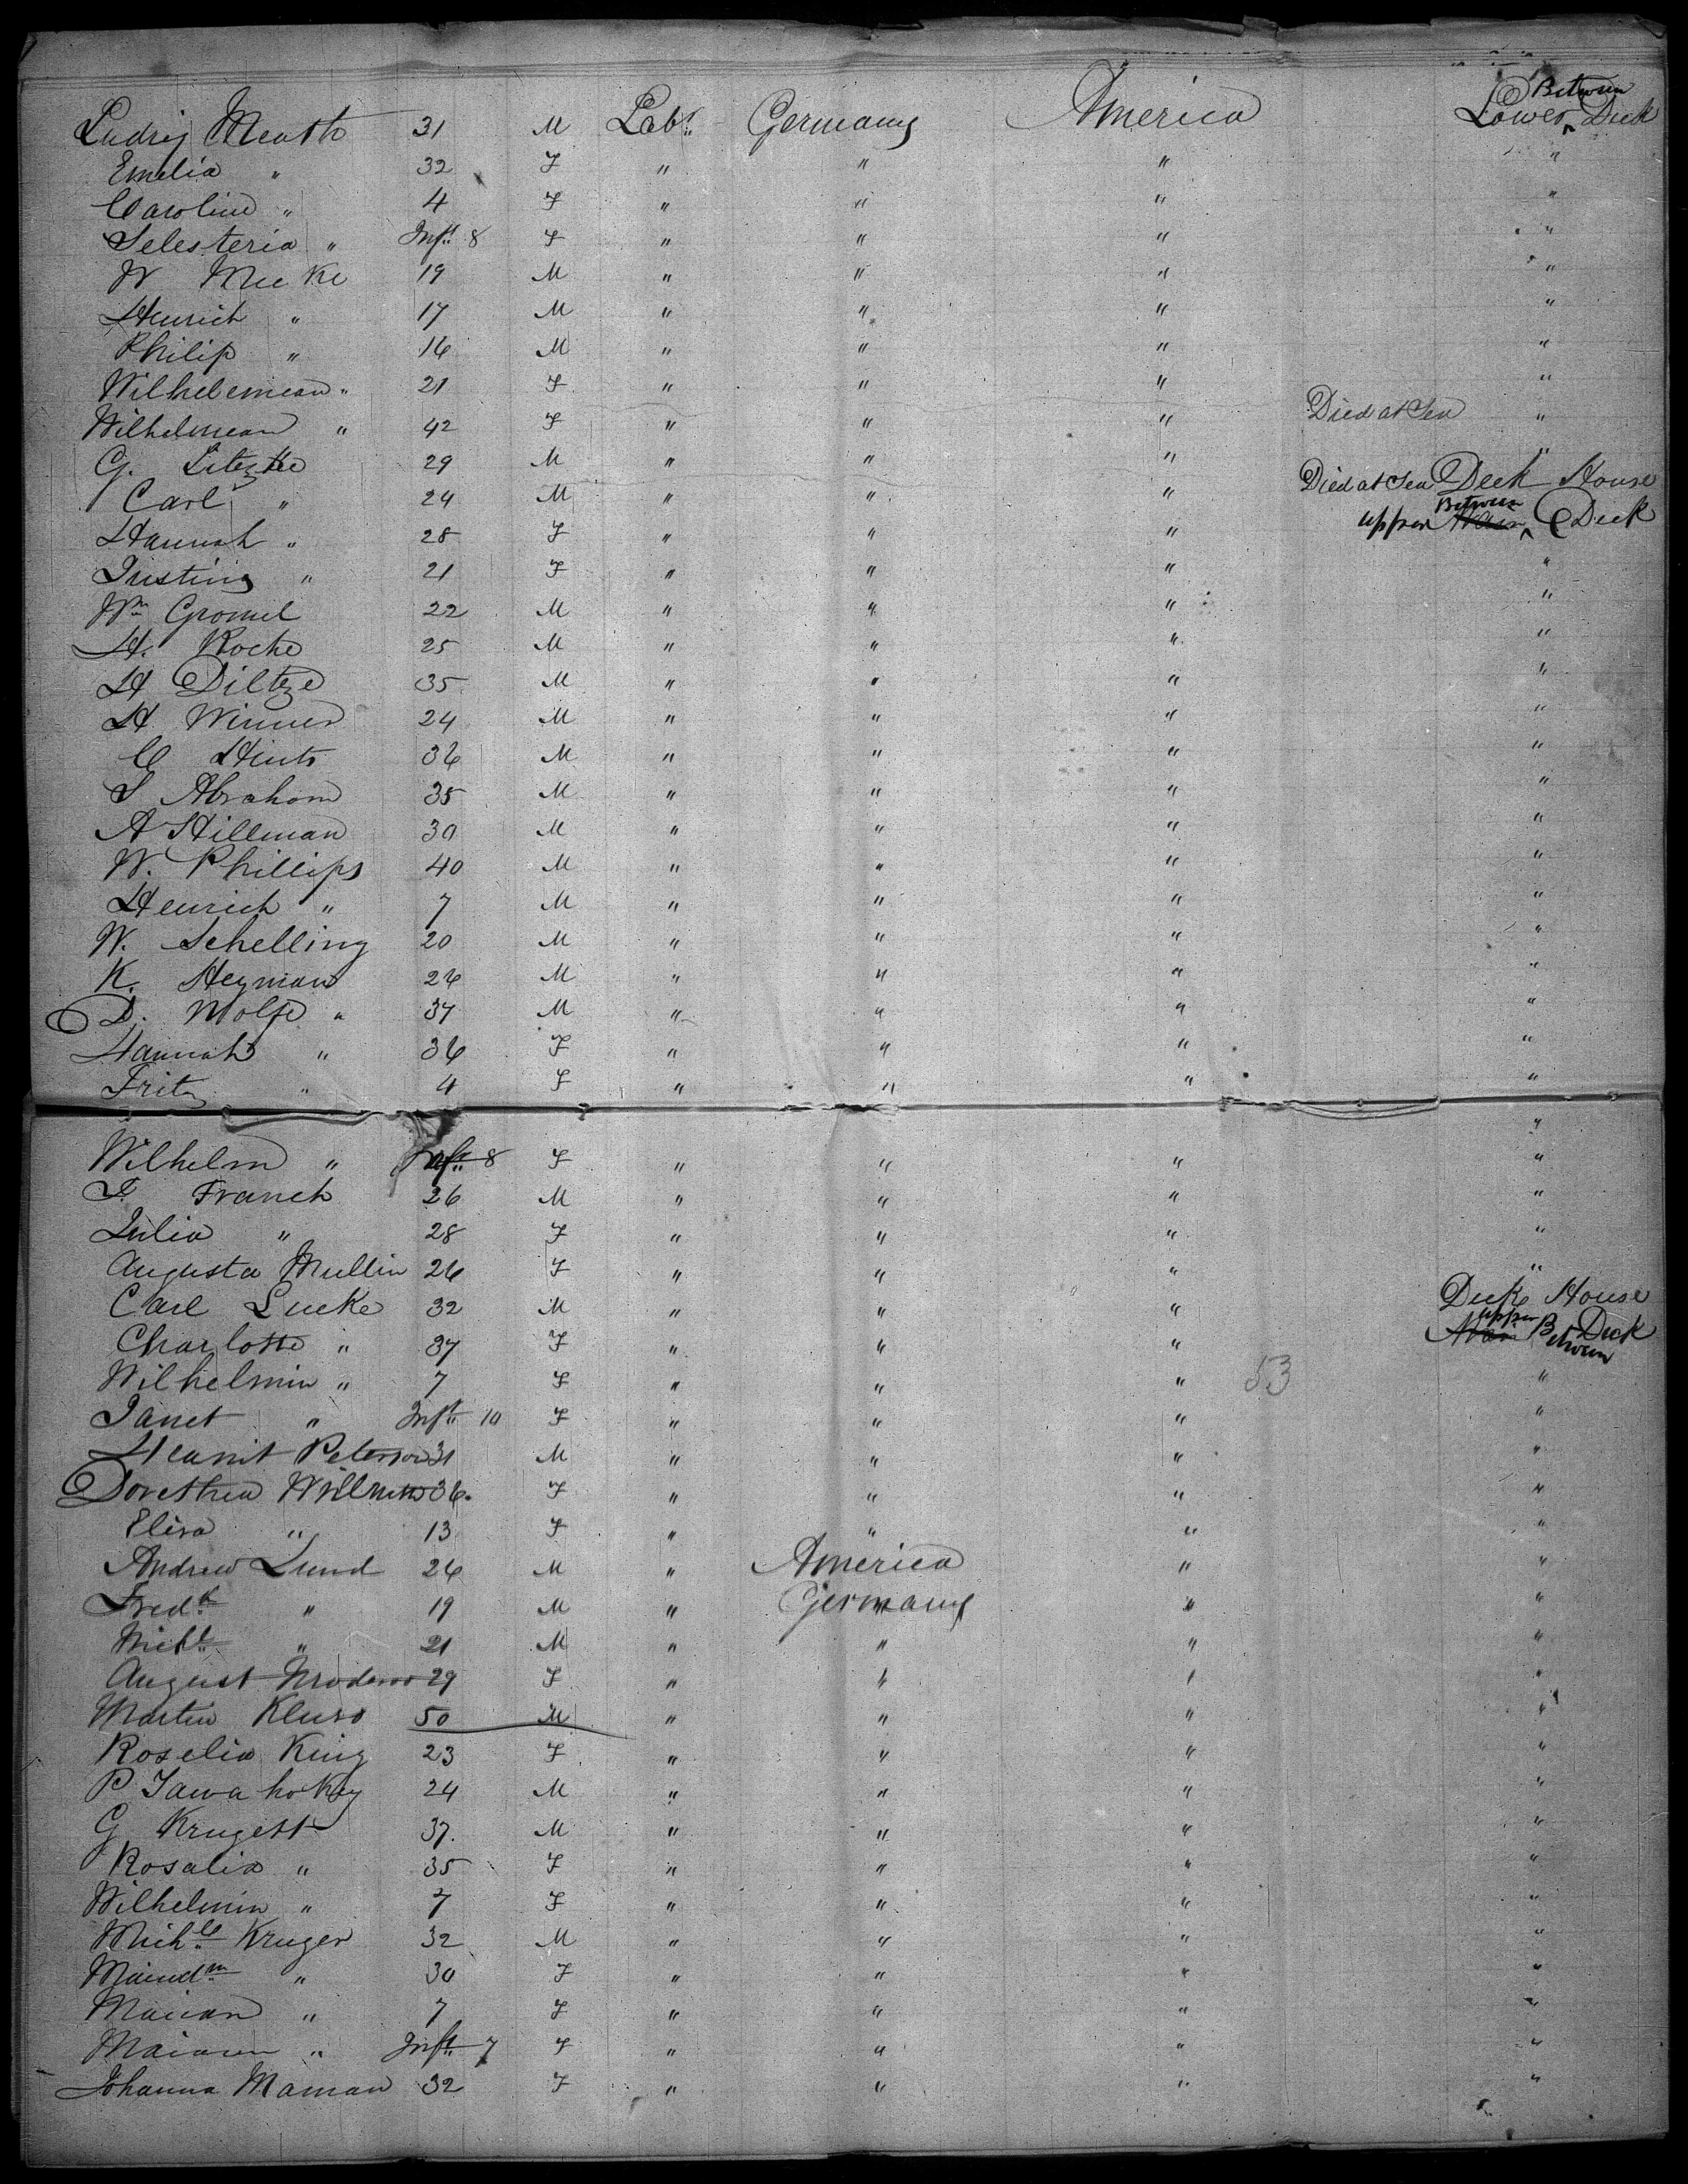 Ludrig Meath 31 M Labr Germany America Lower Between Deck
Emelia " 32 F " " " "
Caroline " 4 F " " " "
Selesteria " Inft 8 F " " " "
W Mecke 19 M " " " "
Henrich " 17 M " " " "
Philip " 16 M " " " "
Wilhelemean " 21 F " " " "
Wilhelmean " 42 F " " " Died at Sea "
G. Litezke 29 M " " " "
Carl " 24 M " " " Died at Sea Deck House
Hannah " 28 F " " " upper Main Between Deck
Justing " 21 F " " " "
Wm Gromel 22 M " " " "
H. Roche 25 M " " " "
H Diltze 35 M " " " "
H Winner 24 M " " " "
C Hints 36 M " " " "
S Abraham 35 M " " " "
A Hillman 30 M " " " "
W. Phillips 40 M " " " "
Henrich " 7 M " " " "
W. Schelling 20 M " " " "
K. Heyman 26 M " " " "
D. Wolfe " 37 M " " " "
Hannah " 36 F " " " "
Fritz " 4 F " " " "
"
Wilhelm " Inft 8 F " " " "
F. Franch 26 M " " " "
Julia " 28 F " " " "
Augusta Mullin 26 F " " " "
Carl Lucke 32 M " " " Deck House
Charlotte " 37 F " " " Main upper Between Deck
Wilhelmin " 7 F " " " 53 "
Janet " Inft 10 F " " " "
Heanit Peterson 31 M " " " "
Dorethea Willmers 36. F " " " "
Elisa " 13 F " " " "
Andrew Lund 26 M " America " "
Fredk " 19 M " Germany " "
Michl " 21 M " " " "
August 29 F " " " "
Martin Kluso 50 M " " " "
Roselia King 23 F " " " "
P Jawahokey 24 M " " " "
G Krugett 37. M " " " "
Rosalia " 35 F " " " "
Wilhelmin " 7 F " " " "
Michl Kruger 32 M " " " "
Maindm " 30 F " " " "
Maican " 7 F " " " "
Maiaun " Inft 7 F " " " "
Johanna Maman 32 F " " " "